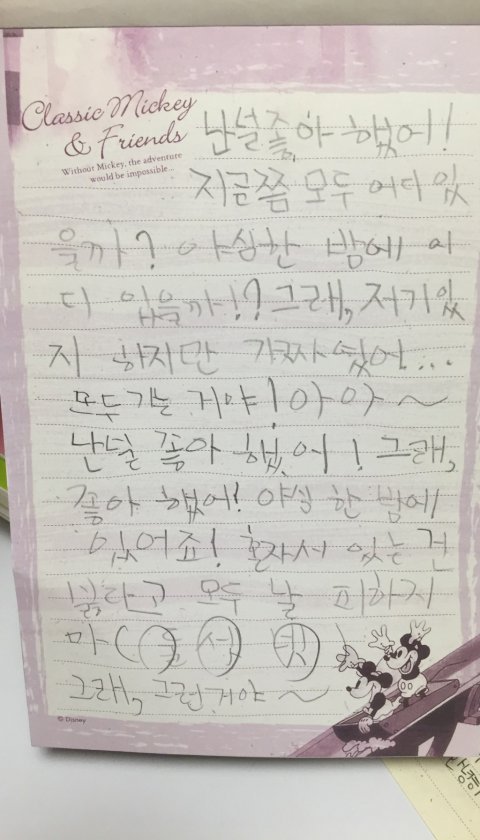 Classic Mickey
& Friends
Without Mickey, the adventure
would be impossible...
난널좋아 했어!
지금쯤 모두 어디 있
을까? 야심한 밤에 어
디 있을까!? 그래, 저기있
지 하지만 가짜였어...
모두가는 거야! 아아~
난널 좋아 했어! 그래,
좋아 했어! 야심 한 밤에
있어죠! 혼자서 있는 건
싫다고 모두 날 피하지
마(
그래, 그런거야~
© Disney